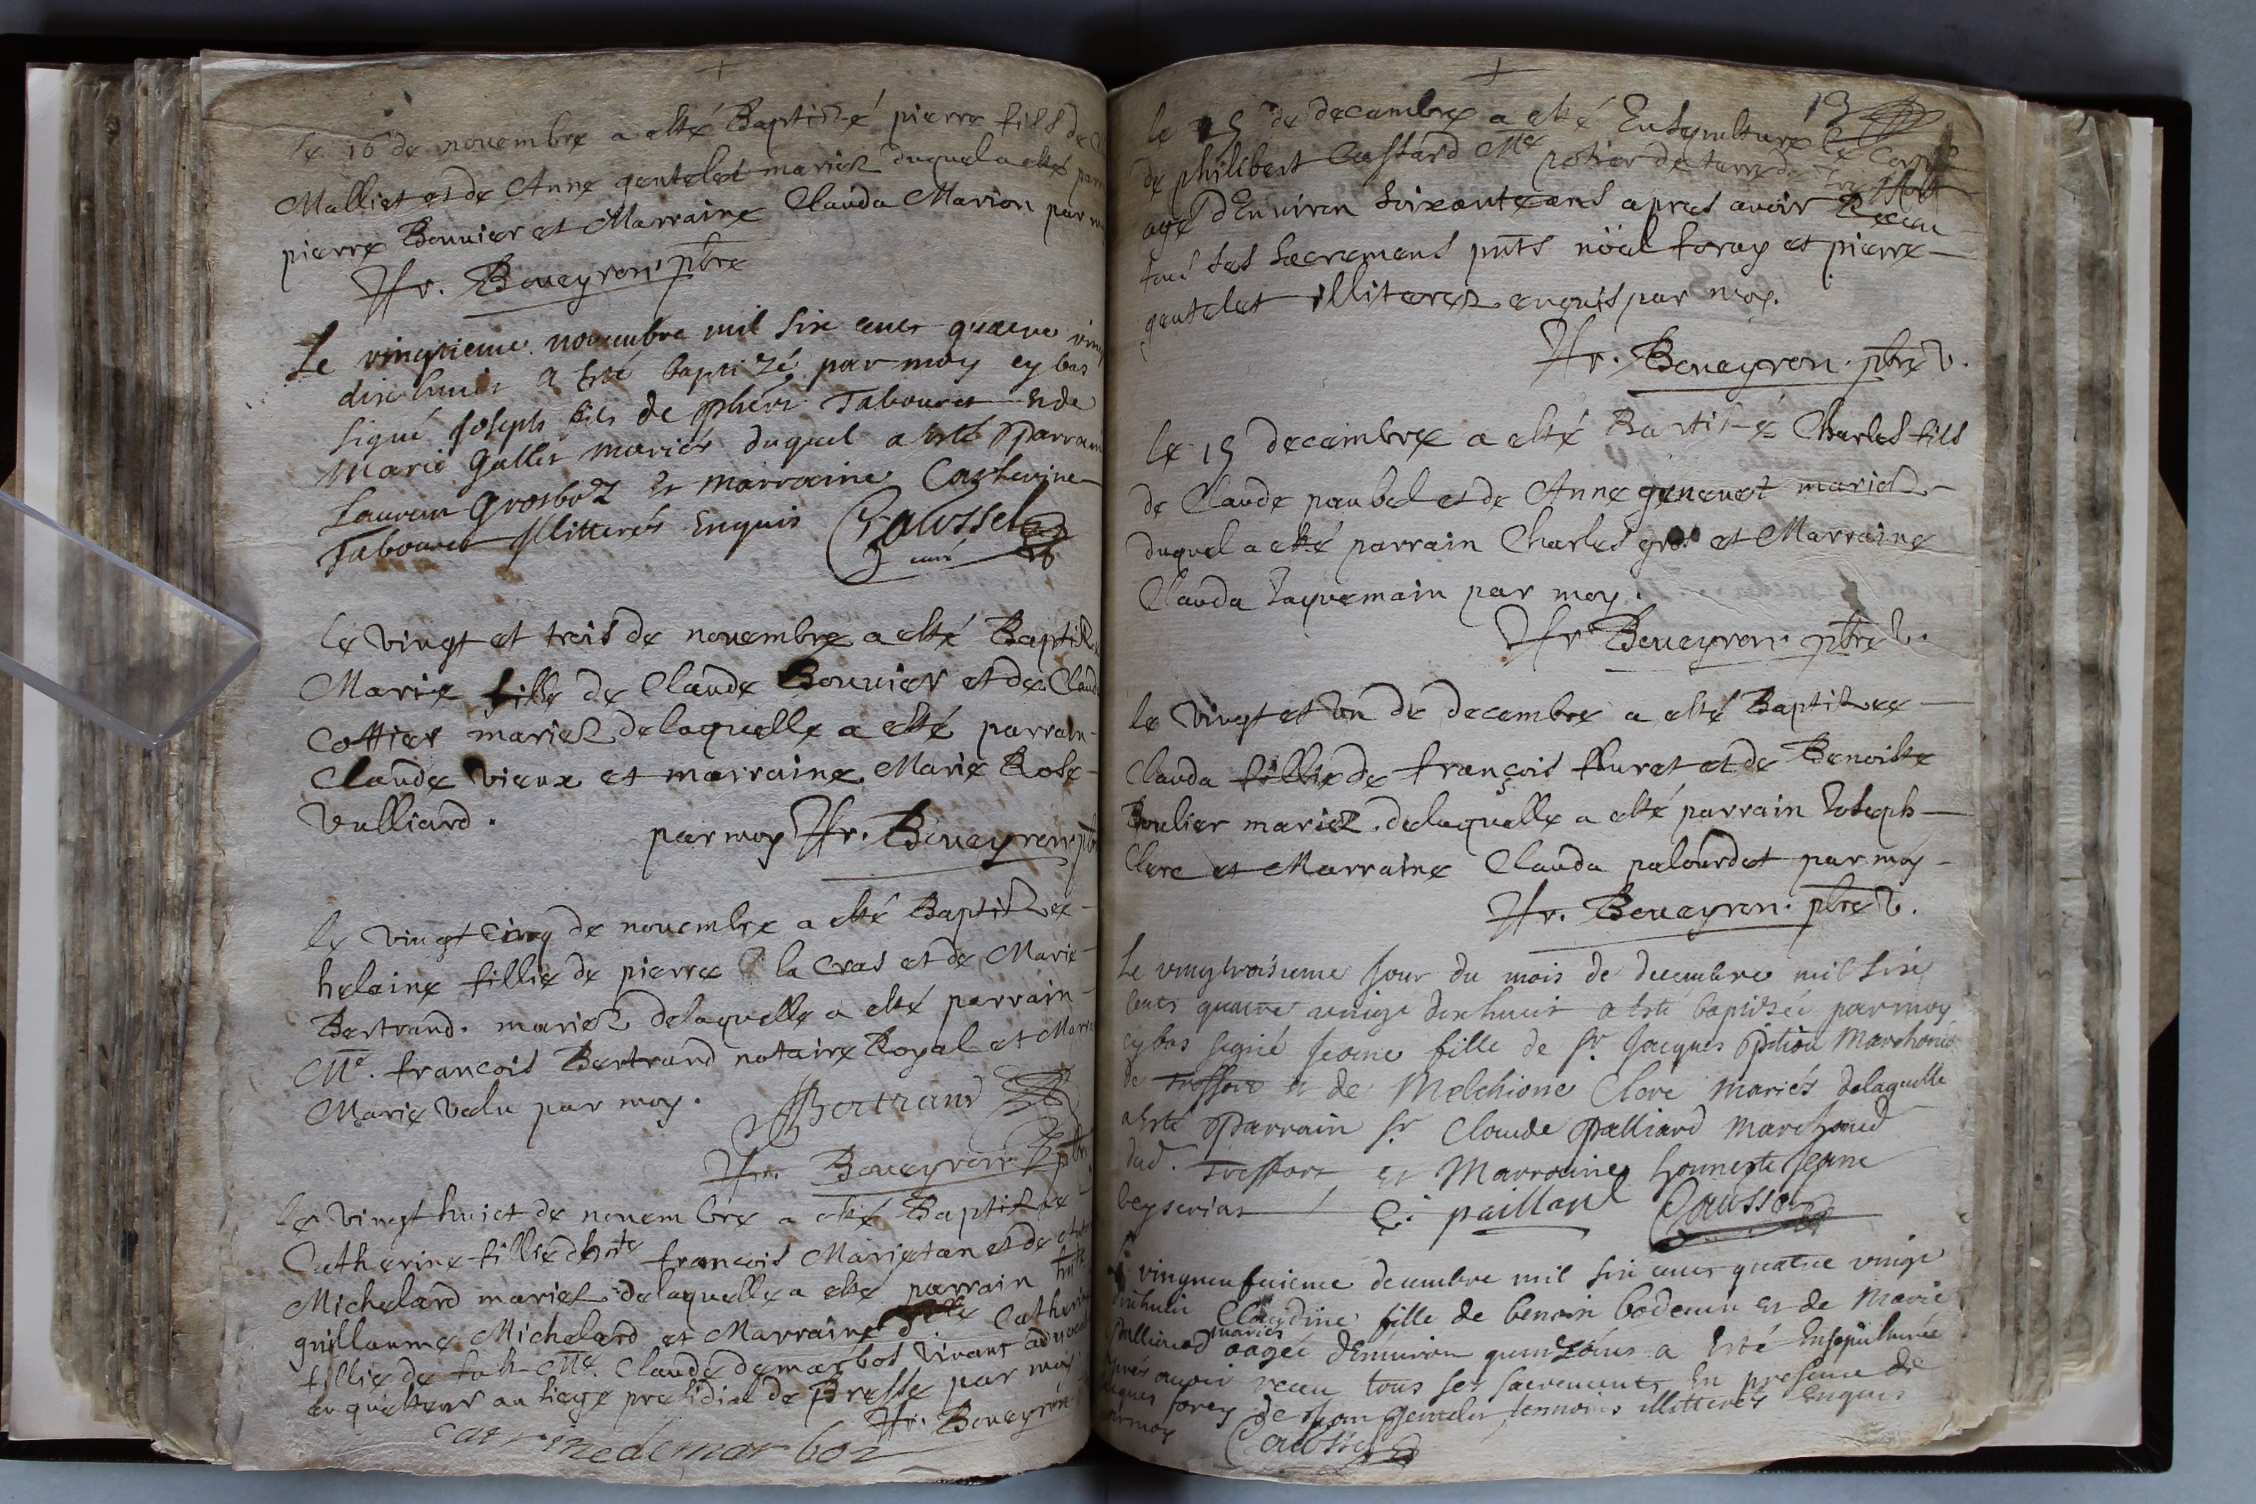 Le 16 de nouembre a esté Baptizé pierre fils de
Malliet et de Anne gentelet mariez duquel a esté
pierre Bouuier et Marraine Clauda Marion par
Fr. Boueyron pbre
Le vingtieme nouembre mil six cens quatre
dixhuit a esté baptizé par moy cy bas
signé Joseph fils de Tabouret et de
Marie Gallet mariés duquel a esté parrain
Laurent Grosboz et marraine Catherine
Tabouret Illitterés Enquis Caussel
curé
le vingt et trois de nouembre a esté
Marie fille de Claude Bouuier et de
Cottier mariez delaquelle a esté parrain
Claude vieux et marraine Marie Rose
Vulliard.
par moy Fr. Boueyron
le vingt cinq de nouembre a esté Baptizee
helaine fillie de pierre la Cras et de Marie
Bertrand. mariez delaquelle a esté parrain
Me. francois Bertrand notaire Royal et
Marie par moy.
Bertrand
Fr. Boueyron
le vingt huict de nouembre a esté Baptizee
Catherine fillie francois Marietan et de
Michelard mariez delaquelle a esté parrain
guillaume Michelard et Marraine
fillie de Me. Claude demarbos vivant
enquesteur au siege presidial de Bresse par moy
Fr. Boueyron
catrine demarboz
13
le 15 de decembre a esté Ensepulturé le
de philibert Castard Me potier de terre de
agé d'Enuiron soixante ans apres avoir Receu
tous ses sacremens pnts nöel foray et pierre
gentelet illiterez enquis par moy.
Fr. Boueyron. pbre v.
le 15 decembre a esté Charles fils
de Claude paubel et de Anne geneuet mariez
duquel a esté parrain Charles gros et Marraine
Clauda Jaquemain par moy.
Fr Boueyron. pbre v.
le vingt et Vn de decembre a esté Baptizee
Clauda fillie de françois fluret et de Benoiste
Boulier mariez. delaquelle a esté parrain Joseph
Clerc et Marraine Clauda palourdet par moy
Fr. Boueyron. pbre v.
Le vingtroisieme Jour du mois de decembre mil six
cents quatre vingt dixhuit a esté baptizée par moy
cy bas signé Jeane fille de sr. Jacques Marchand
de Treffort et de Melchione Clerc mariés delaquelle
a esté Parrain sr Claude Palliard Marchand
dud. Treffort et Marraine honneste Jeane
C. paillard Caussel
vingneufuieme decembre mil six cens quatre vingt
Claudine fille de benoin bodenin et de Marie
Palliard mariés aagée d'enuiron a esté Ensepulturée
après auoir receu tous ses sacrements En presence de
forey de Jean gentelet temoins illitterés enquis
par moy Caussel